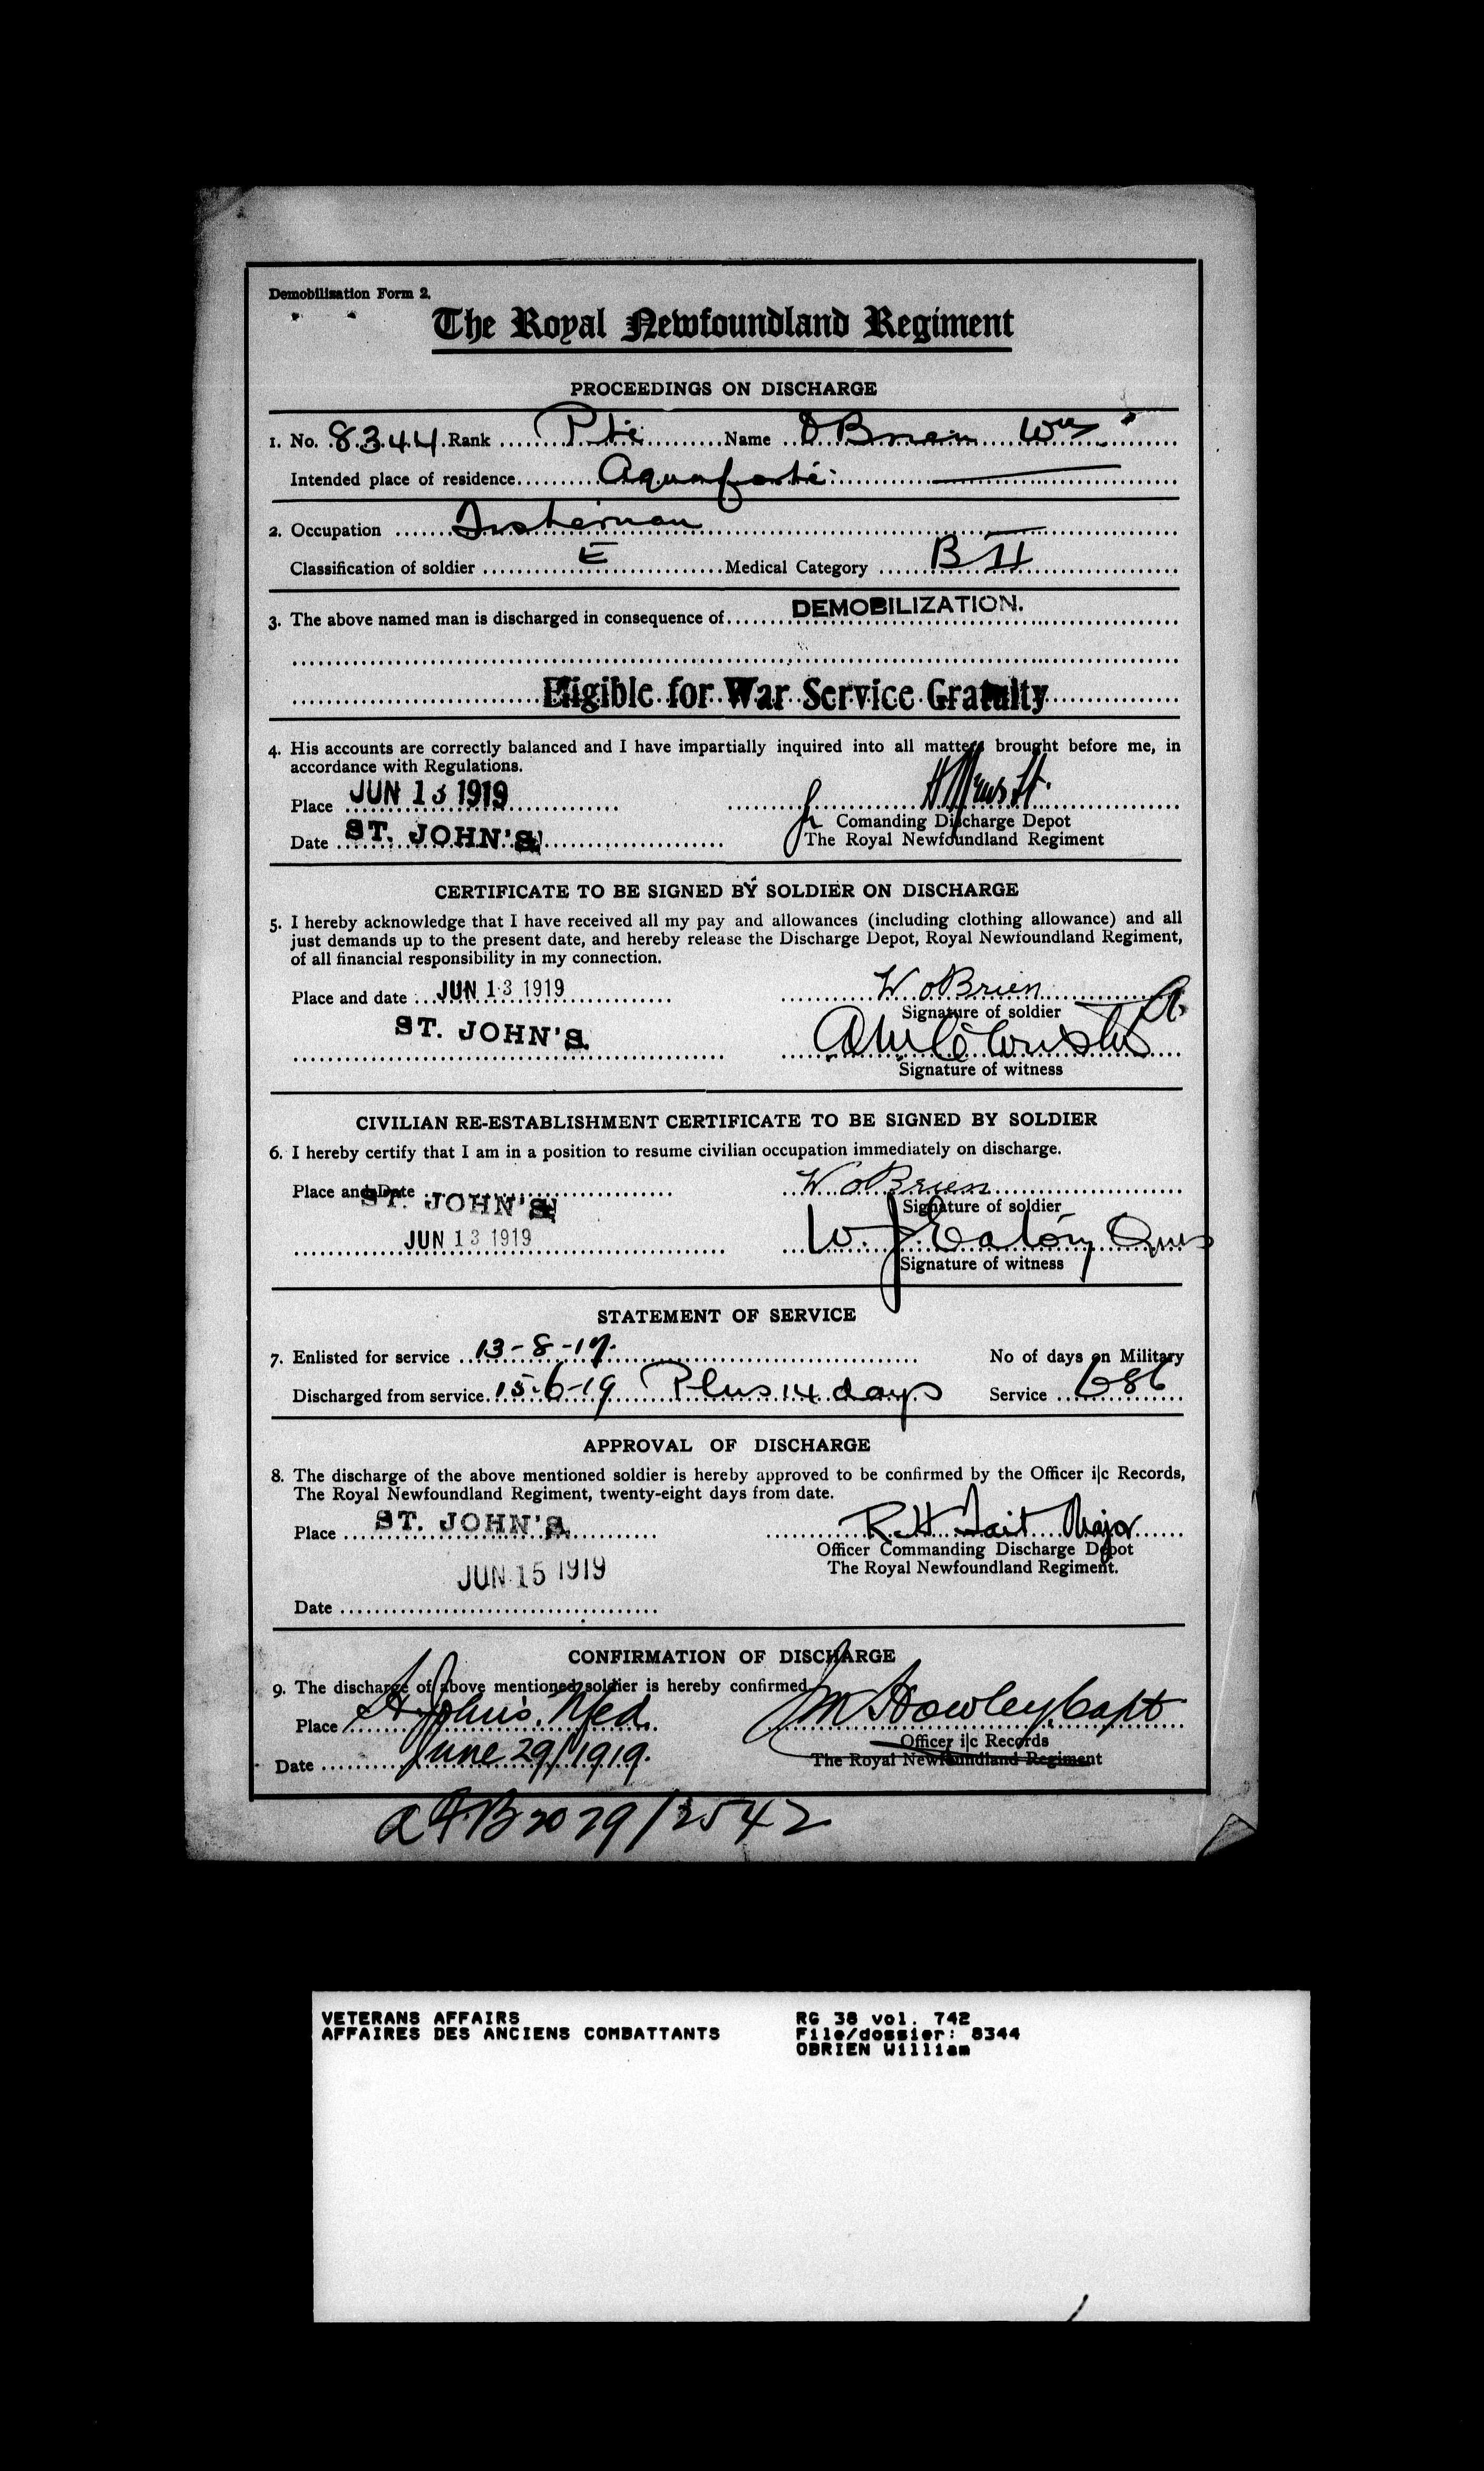 Demobilisation Form 2.
The Royal Newfoundland Regiment
PROCEEDINGS ON DISCHARGE
1. No. 8344 Rank Pte Name O'Brien Wm
Intended place of residence Aquaforte
2. Occupation Fisherman
Classification of soldier E Medical Category B II
3. The above named man is discharged in consequence of DEMOBILIZATION.
Eligible for War Service Gratuity
4. His accounts are correctly balanced and I have impartially inquired into all matters brought before me, in
accordance with Regulations.
Place JUN 13 1919
Comanding Discharge Depot
Date ST. JOHN'S
The Royal Newfoundland Regiment
CERTIFICATE TO BE SIGNED BY SOLDIER ON DISCHARGE
5. I hereby acknowledge that I have received all my pay and allowances (including clothing allowance) and all
just demands up to the present date, and hereby release the Discharge Depot, Royal Newfoundland Regiment,
of all financial responsibility in my connection.
Place and date JUN 13 1919 W OBrien
Signature of soldier
ST. JOHN'S.
Signature of witness
CIVILIAN RE-ESTABLISHMENT CERTIFICATE TO BE SIGNED BY SOLDIER
6. I hereby certify that I am in a position to resume civilian occupation immediately on discharge.
Place and Date ST. JOHN'S W OBrien
Signature of soldier
JUN 13 1919 W. J. Eaton
Signature of witness
STATEMENT OF SERVICE
7. Enlisted for service 13-8-17. No of days on Military
Discharged from service 15-6-19 Plus 14 days Service 686
APPROVAL OF DISCHARGE
8. The discharge of the above mentioned soldier is hereby approved to be confirmed by the Officer i|c Records,
The Royal Newfoundland Regiment, twenty-eight days from date.
Place ST. JOHN'S R H Tait Major
Officer Commanding Discharge Depot
The Royal Newfoundland Regiment.
JUN 15 1919
Date
CONFIRMATION OF DISCHARGE
9. The discharge of above mentioned soldier is hereby confirmed
Place St. John's, Nfld. J M Howley, Capt
Officer i|c Records
Date June 29/1919. The Royal Newfoundland Regiment
AFB 2079/2542
VETERANS AFFAIRS RG 38 vol. 742
AFFAIRES DES ANCIENS COMBATTANTS File/dossier: 8344
OBRIEN William